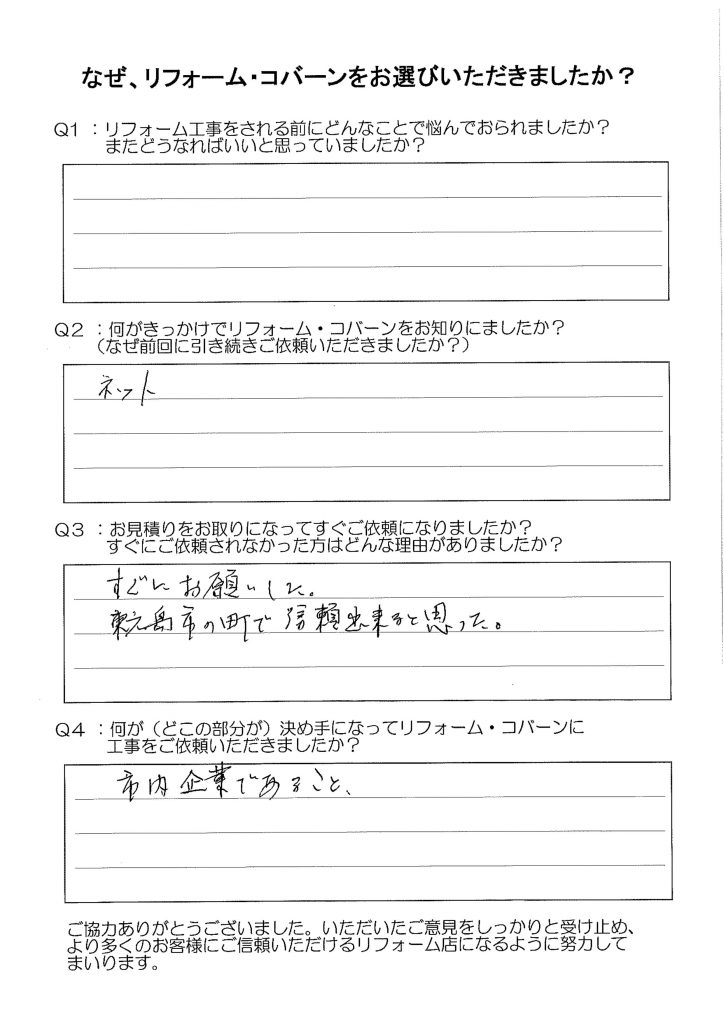 なぜ、リフォーム・コバーンをお選びいただきましたか？
Q1 ：リフォーム工事をされる前にどんなことで悩んでおられましたか？
またどうなればいいと思っていましたか？
Q2 ：何がきっかけでリフォーム・コバーンをお知りにましたか？
（なぜ前回に引き続きご依頼いただきましたか？）
ネット
Q3 ：お見積りをお取りになってすぐご依頼になりましたか？
すぐにご依頼されなかった方はどんな理由がありましたか？
すぐにお願いした。
東広島市の町で信頼出来ると思った。
Q4 ：何が（どこの部分が）決め手になってリフォーム・コバーンに
工事をご依頼いただきましたか？
市内企業であること、
ご協力ありがとうございました。いただいたご意見をしっかりと受け止め、
より多くのお客様にご信頼いただけるリフォーム店になるように努力して
まいります。